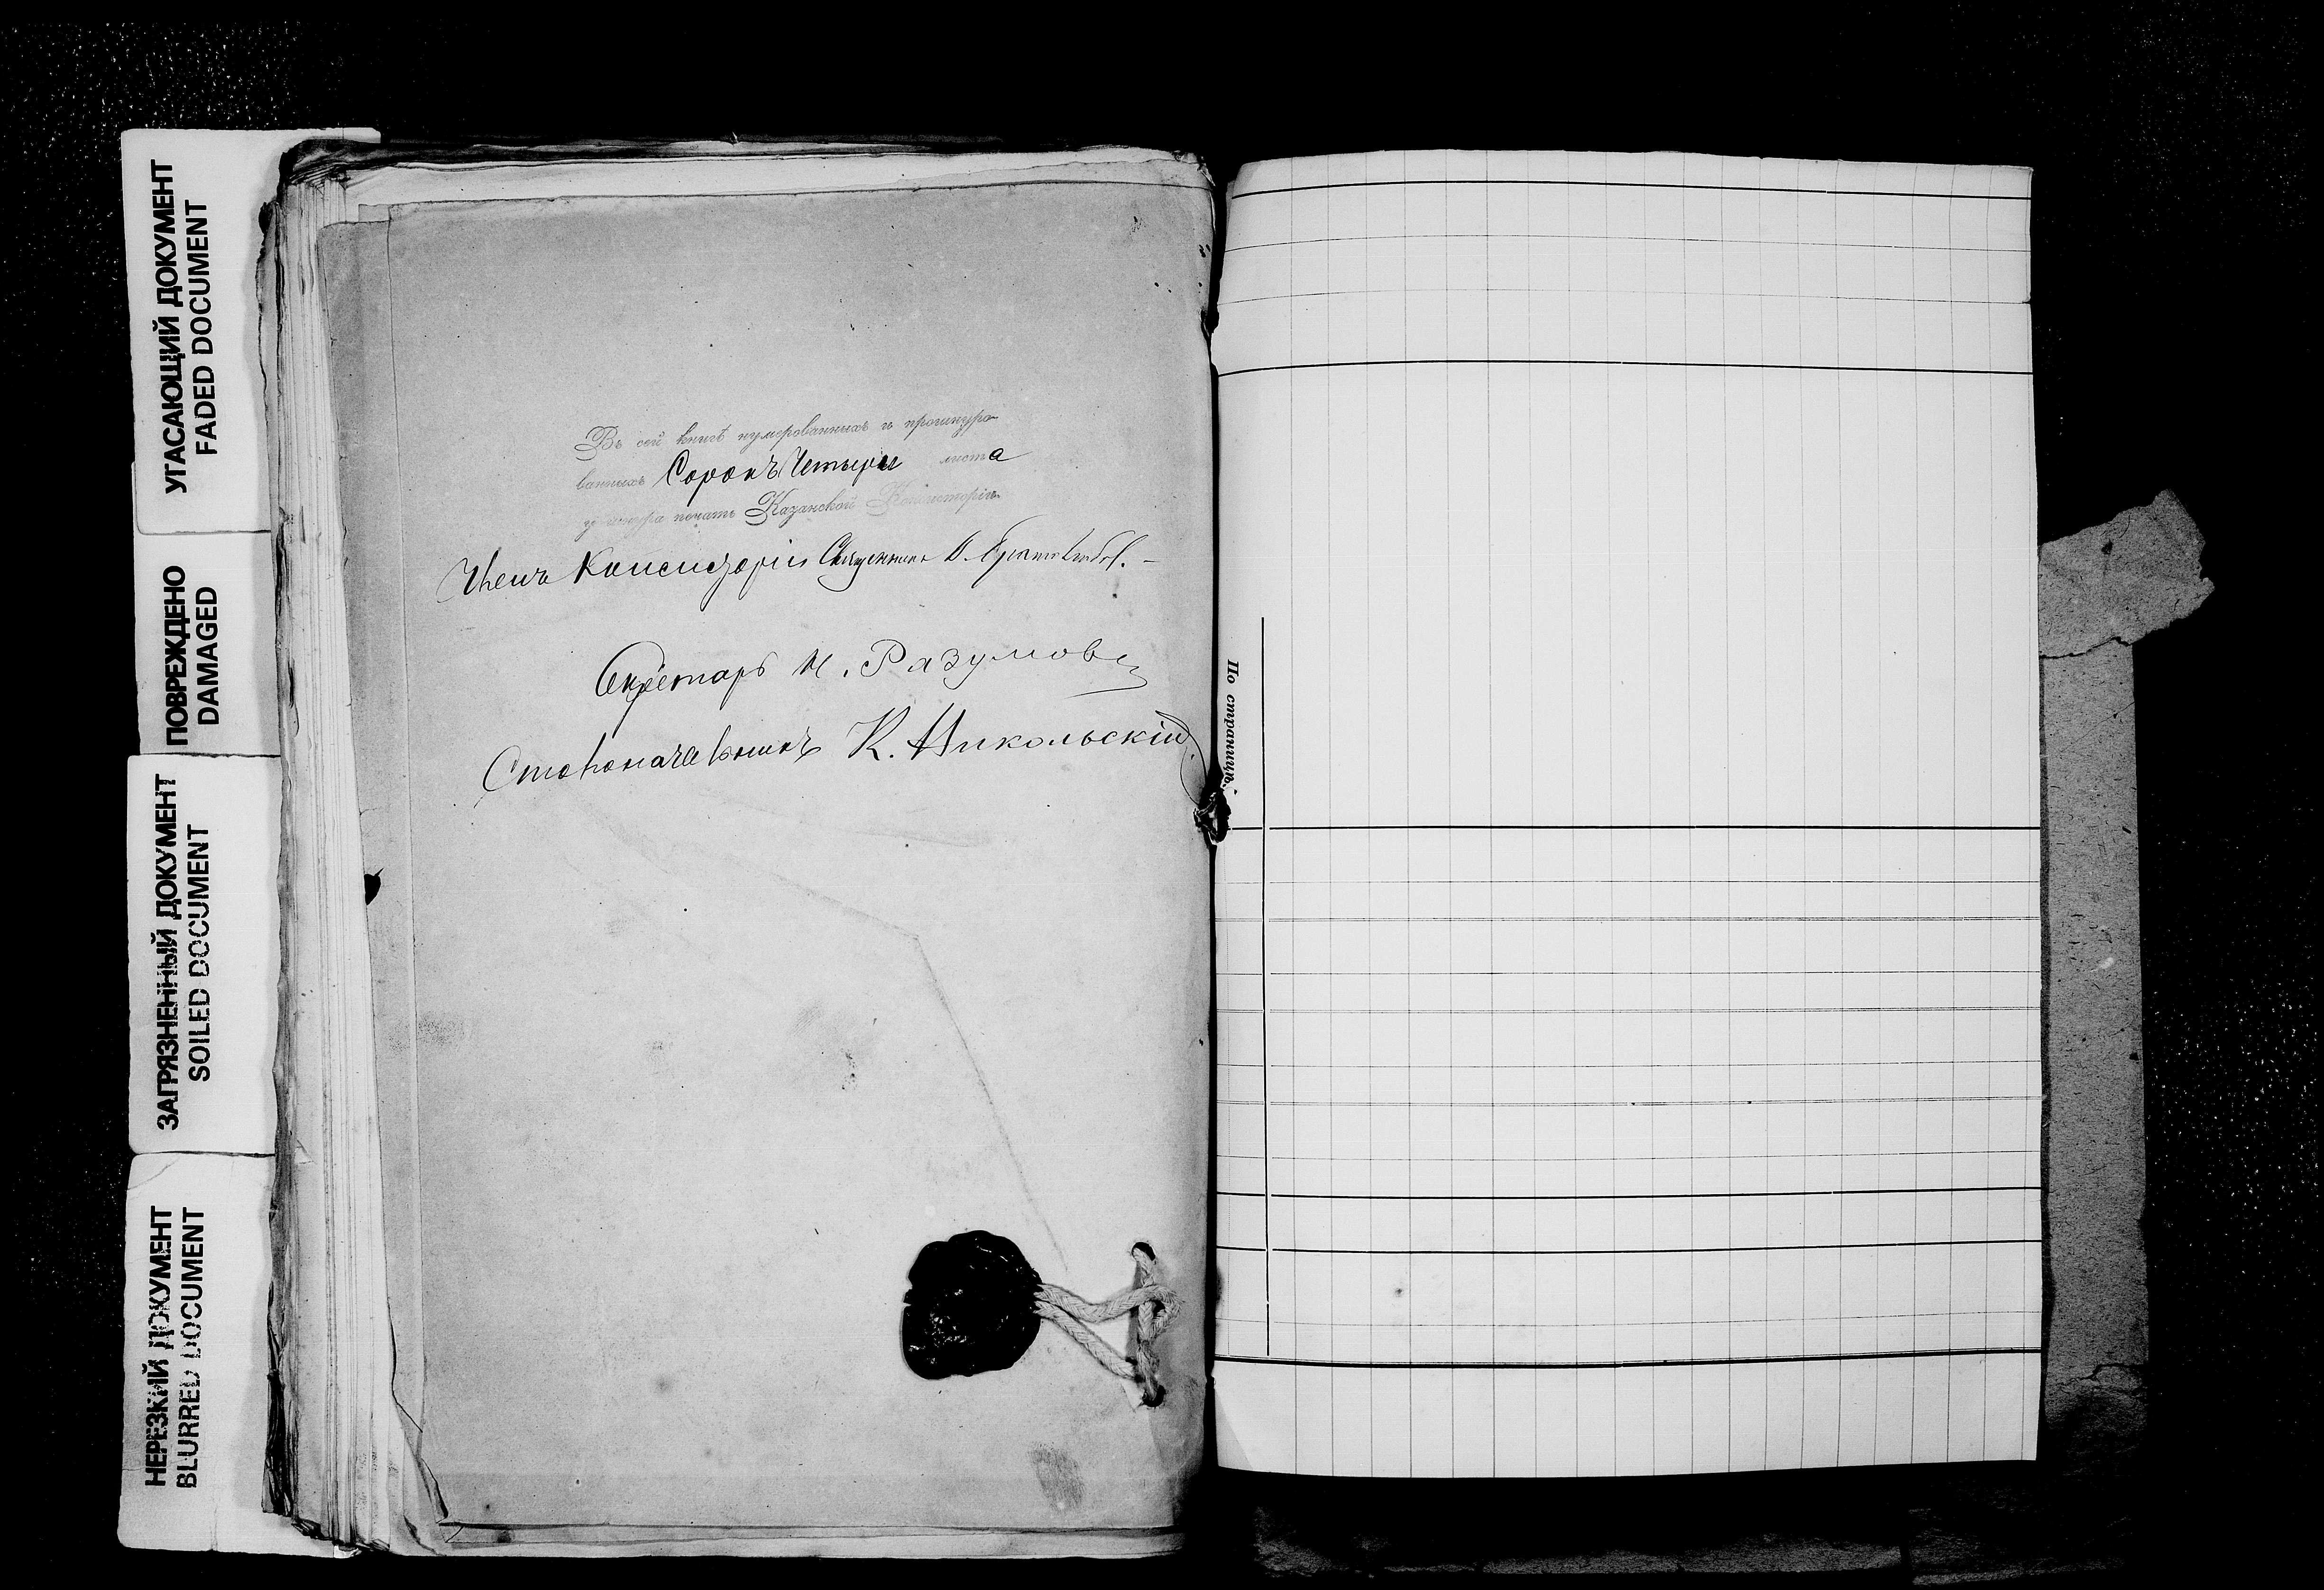 УГАСАЮЩИЙ ДОКУМЕНТ
FADED DOCUMENT
ПОВРЕЖДЕНО
DAMAGED
ЗАГРЯЗНЕННЫЙ ДОКУМЕНТ
SOILED DOCUMENT
НЕРЕЗКИЙ ДОКУМЕНТ
BLURRED DOCUMENT
Въ сей книгѣ нумерованныхъ и прошнуро-
ванныхъ Сорокъ Четыре листа
у шнура печать Казанской Консисторіи.
Членъ Консисторіи Священникъ
Секретарь И. Разумовъ
Столоначальникъ К. Никольскій
По страницѣ.